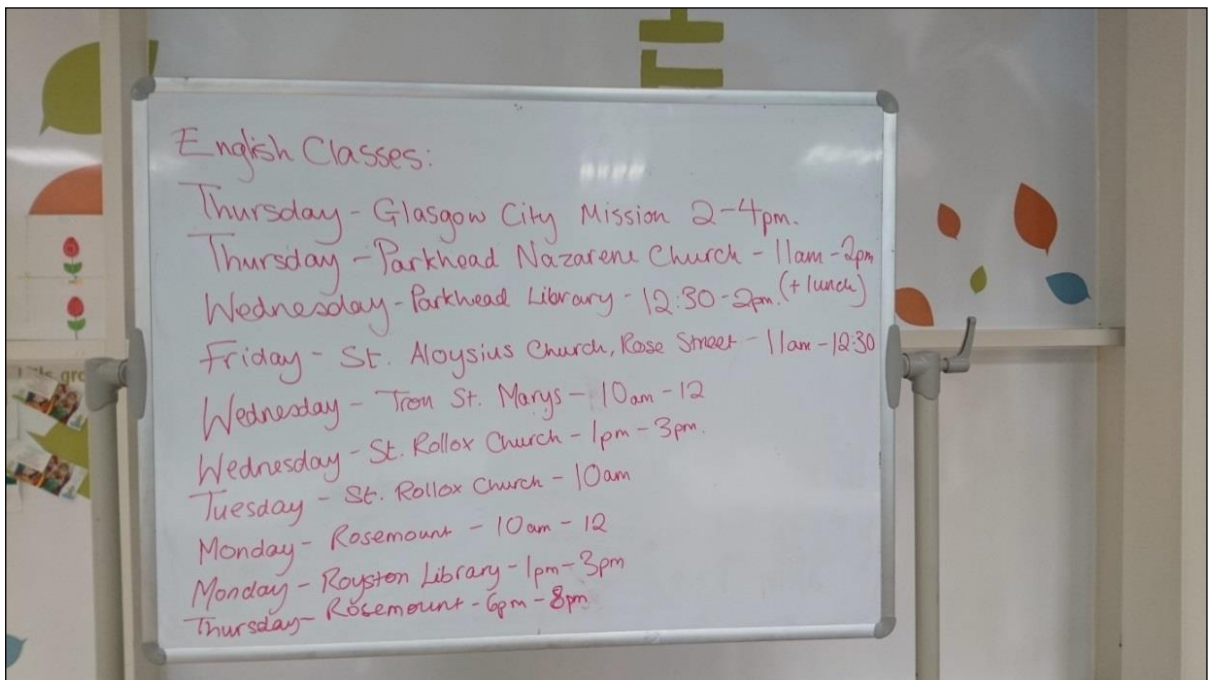 English Classes:
Thursday - Glasgow City Mission 2-4pm.
Thursday - Parkhead Nazarene Church - 11am - 2pm
(+ lunch)
Wednesday - Parkhead Library - 12:30 - 2pm.
Friday - St. Aloysius Church, Rose Street - 11am - 12:30
Wednesday - Tron St. Marys - 10am - 12
Wednesday - St. Rollox Church - 1pm - 3pm.
Tuesday - St. Rollox Church - 10am
Monday - Rosemount - 10am - 12
Monday - Royston Library - 1pm - 3pm
Thursday - Rosemount - 6pm - 8pm